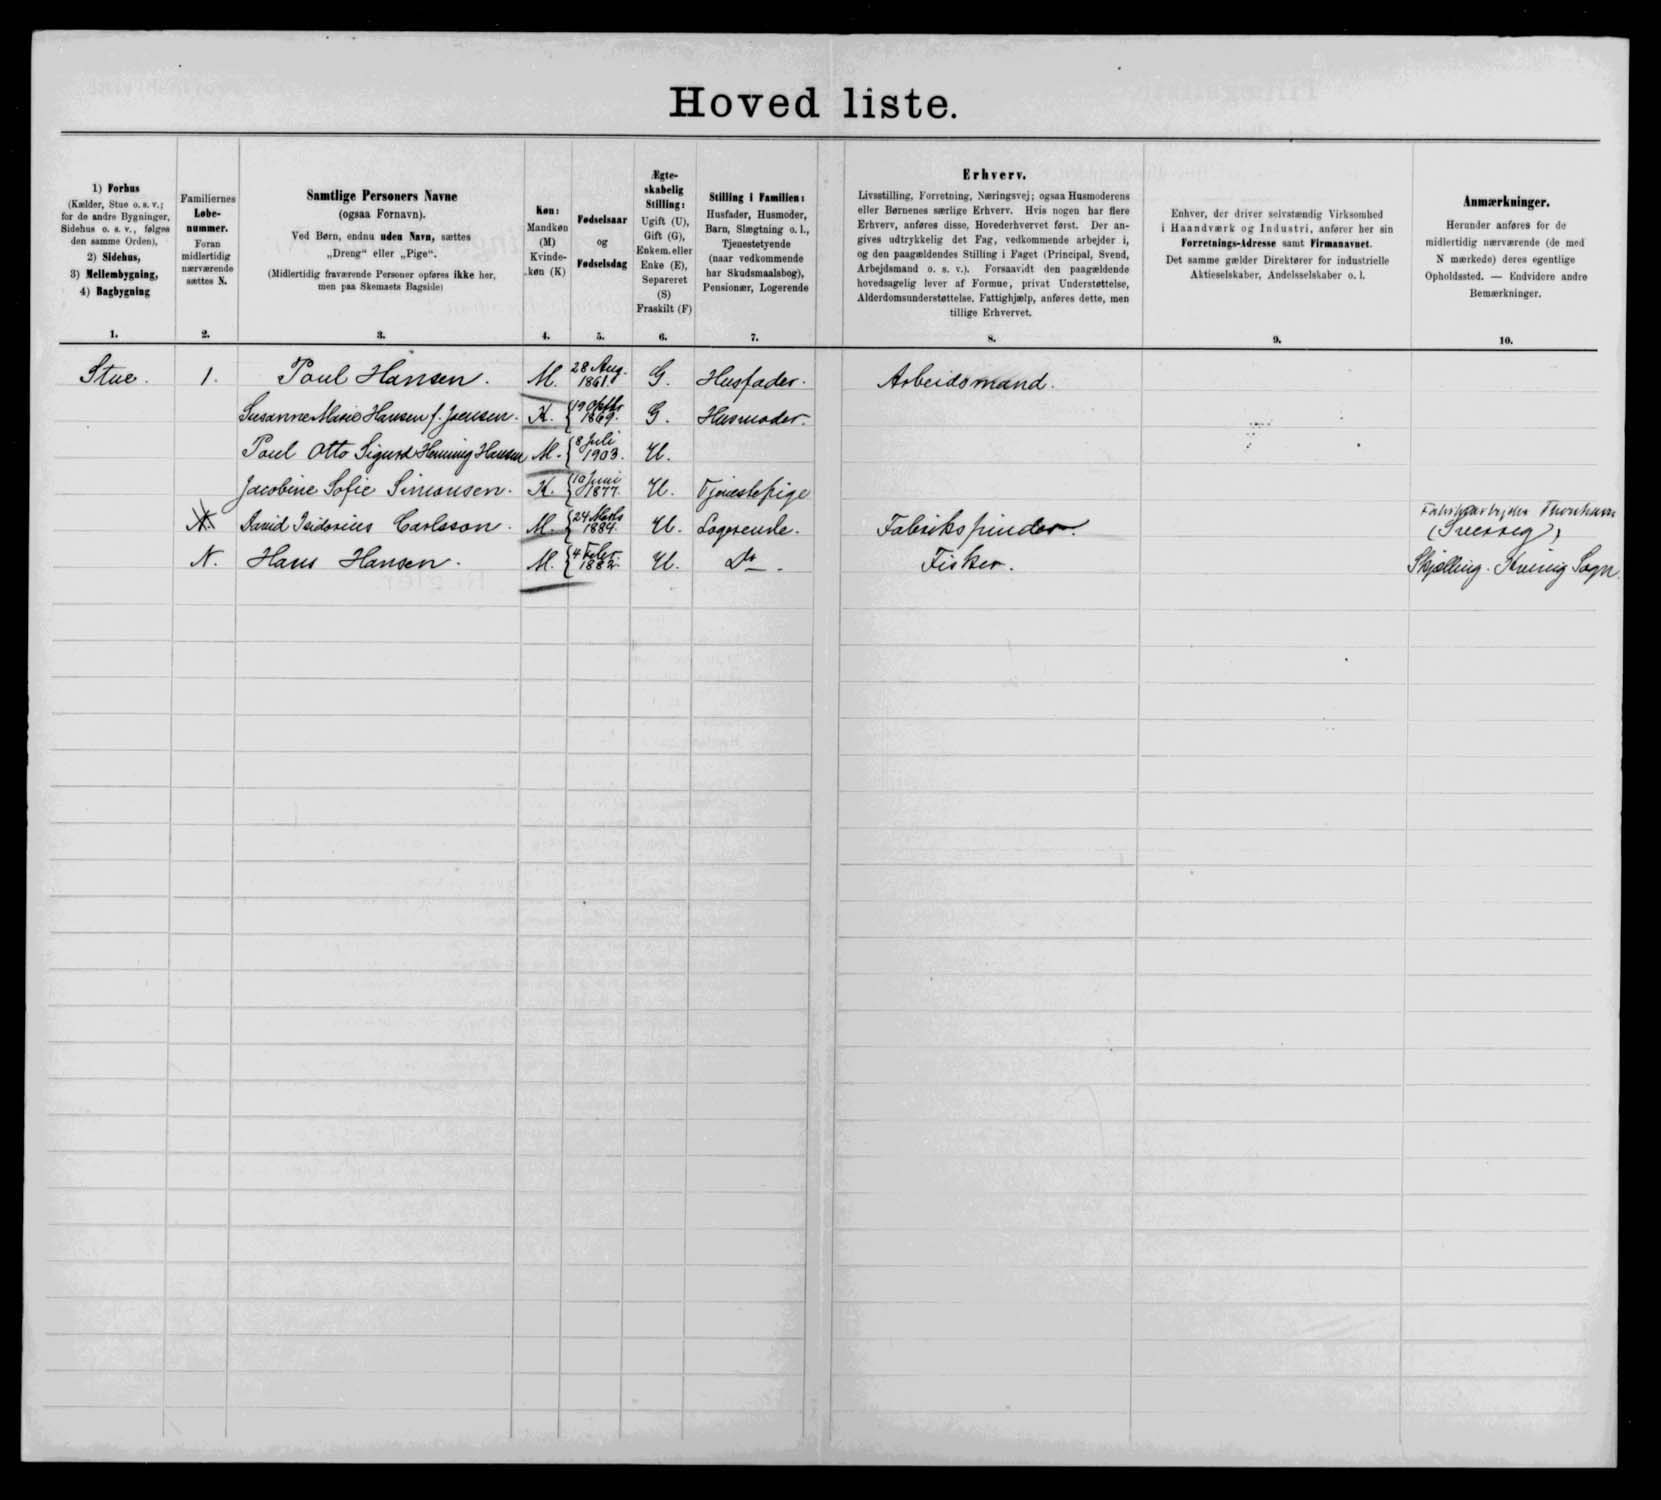 Hoved liste.
1) Forhus
(Kælder, Stue o. s. v.;
for de andre Bygninger,
Sidehus o. s. v., følges
den samme Orden),
2) Sidehus,
3) Mellembygning,
4) Bagbygning
1.
Familiernes
Løbe-
nummer.
Foran
midlertidig
nærværende
sættes N.
2.
Samtlige Personers Navne
(ogsaa Fornavn).
Ved Børn, endnu uden Navn, sættes
„Dreng“ eller „Pige“.
(Midlertidig fraværende Personer opføres ikke her,
men paa Skemaets Bagside)
3.
Køn:
Mandkøn
(M)
Kvinde-
køn (K)
4.
Fødselsaar
og
Fødselsdag
5.
Ægte-
skabelig
Stilling:
Ugift (U),
Gift (G),
Enkem. eller
Enke (E),
Separeret
(S)
Fraskilt (F)
6.
Stilling i Familien:
Husfader, Husmoder,
Barn, Slægtning o. l.,
Tjenestetyende
(naar vedkommende
har Skudsmaalsbog),
Pensionær, Logerende
7.
Erhverv.
Livsstilling, Forretning, Næringsvej; ogsaa Husmoderens
eller Børnenes særlige Erhverv. Hvis nogen har flere
Erhverv, anføres disse, Hovederhvervet først. Der an-
gives udtrykkelig det Fag, vedkommende arbejder i,
og den paagældendes Stilling i Faget (Principal, Svend,
Arbejdsmand o. s. v.). Forsaavidt den paagældende
hovedsagelig lever af Formue, privat Understøttelse,
Alderdomsunderstøttelse, Fattighjælp, anføres dette, men
tillige Erhvervet.
8.
Enhver, der driver selvstændig Virksomhed
i Haandværk og Industri, anfører her sin
Forretnings-Adresse samt Firmanavnet.
Det samme gælder Direktører for industrielle
Aktieselskaber, Andelsselskaber o. l.
9.
Anmærkninger.
Herunder anføres for de
midlertidig nærværende (de med
N mærkede) deres egentlige
Opholdssted. — Endvidere andre
Bemærkninger.
10.
Stue. 1. Poul Hansen. M. 28 Aug. 1861. G. Husfader. Arbeidsmand.
Susanne Marie Hansen f. Jensen. K. 19 1869. G. Husmoder.
Poul Otto Sigurd Henning Hansen M. 8 Juli 1903. U.
Jacobine Sofie Simonsen. K. 10 Juni 1877. U. Tjenestepige
N. David Isidorius Carlsson. M. 24 Marts 1884. U. Logerende. Fabrikspinder. Fabrikarbejder (Sverrig)
N. Hans Hansen. M. 4 Febr. 1882. U. Do. Fisker. Skjelling. Sogn.